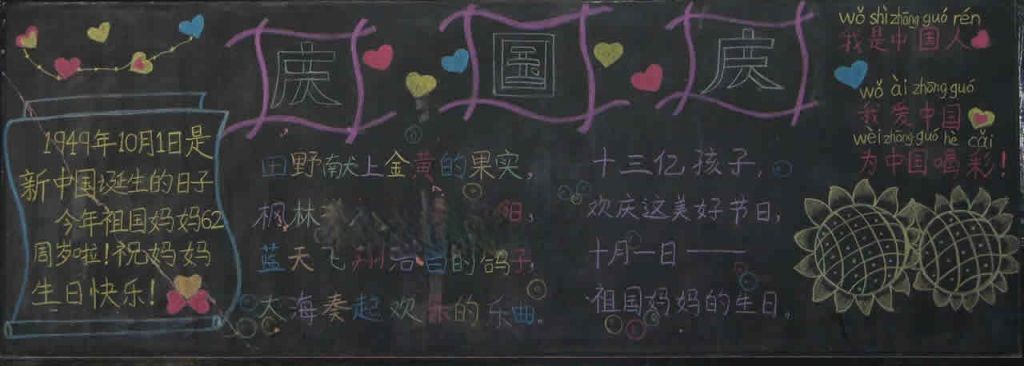 庆国庆
1949年10月1日是
新中国诞生的日子
今年祖国妈妈62
周岁啦!祝妈妈
生日快乐!
田野献上金黄的果实,
枫林
蓝天飞翔洁白的鸽子,
大海奏起欢乐的乐曲。
十三亿孩子,
欢庆这美好节日,
十月一日——
祖国妈妈的生日。
wǒ shì zhōng guó rén
我是中国人
wǒ ài zhōng guó
我爱中国
wèi zhōng guó hè cǎi
为中国喝彩!